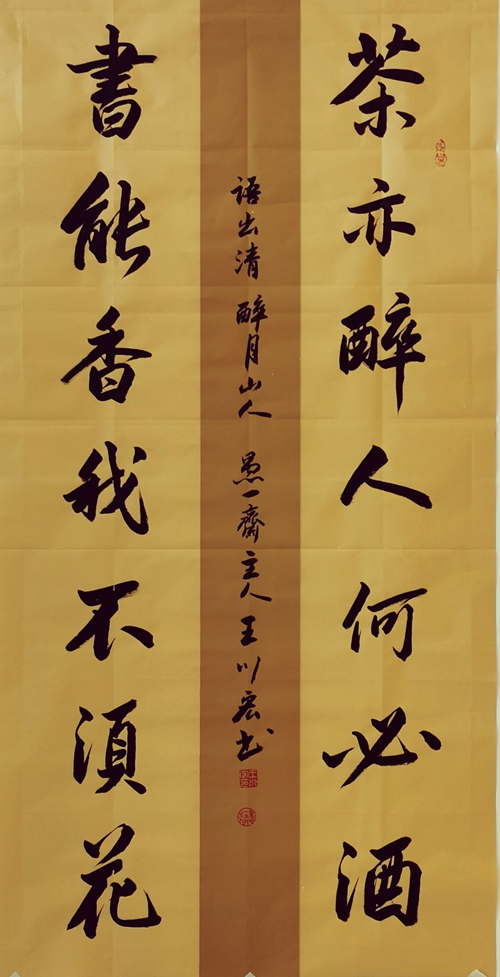 茶亦醉人何必酒
語出清 醉月山人 愚一齋主人 王川宏书
書能香我不須花